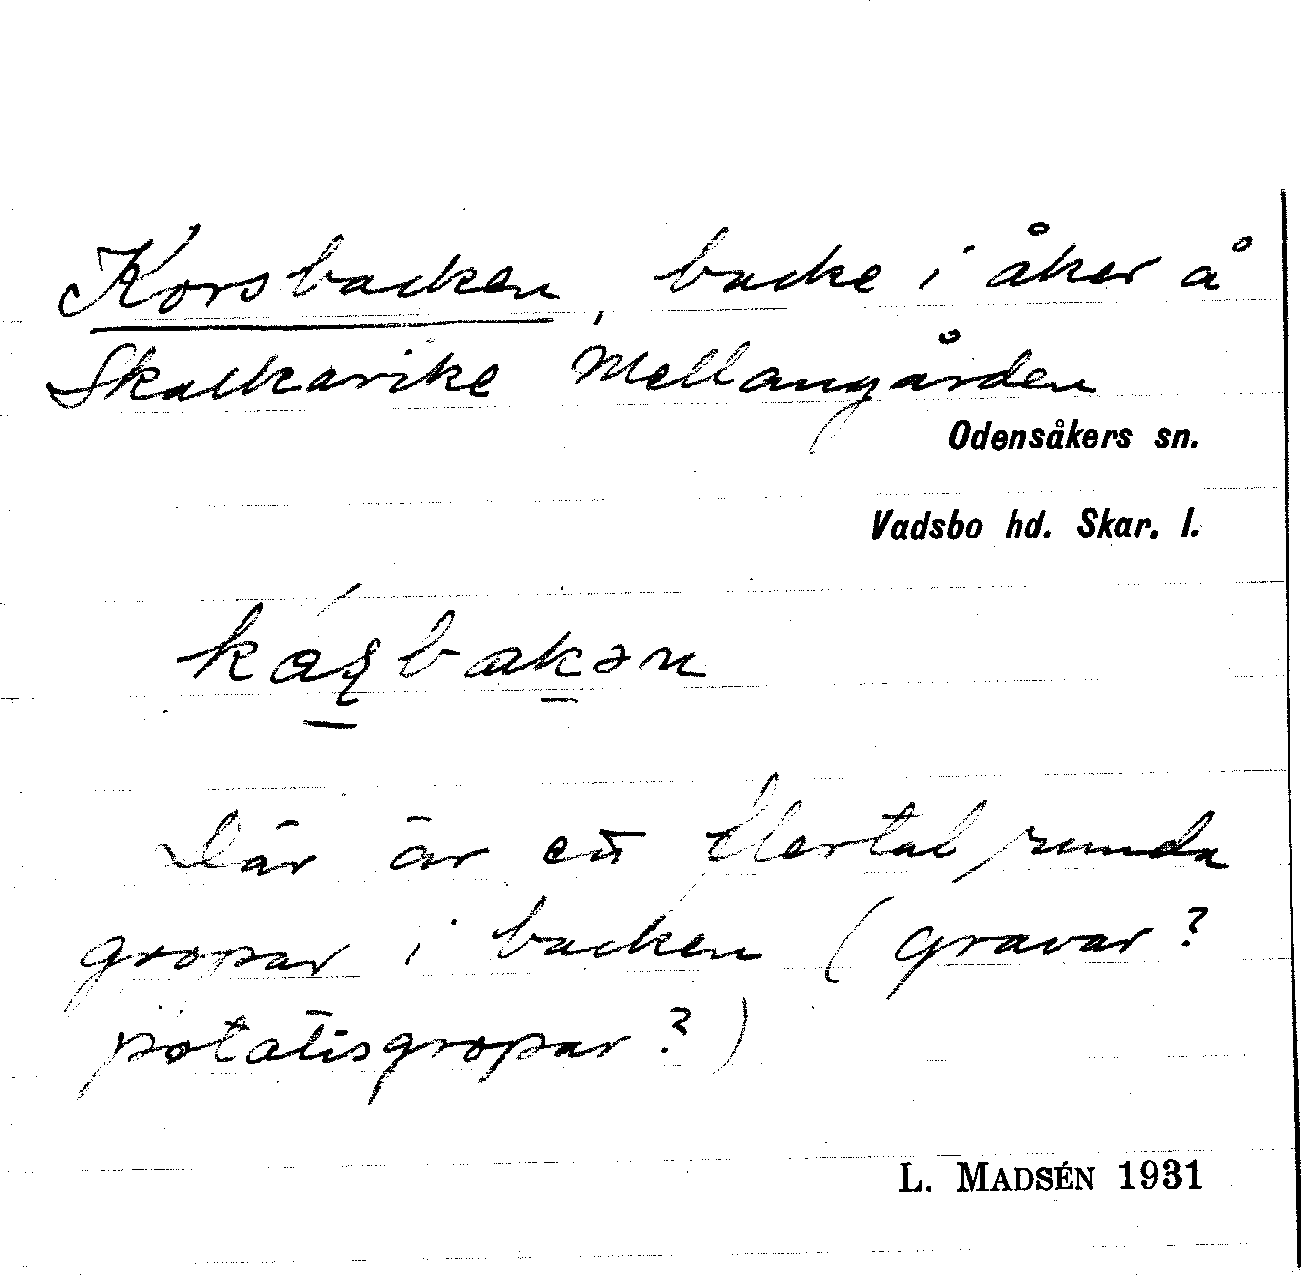 Korsbacken, backe i åker å
Skalkarike Mellangården
Odensåkers sn.
Vadsbo hd. Skar. l.
Där är ett flertal runda
gropar i backen (gravar?
potatisgropar?)
L. MADSÉN 1931